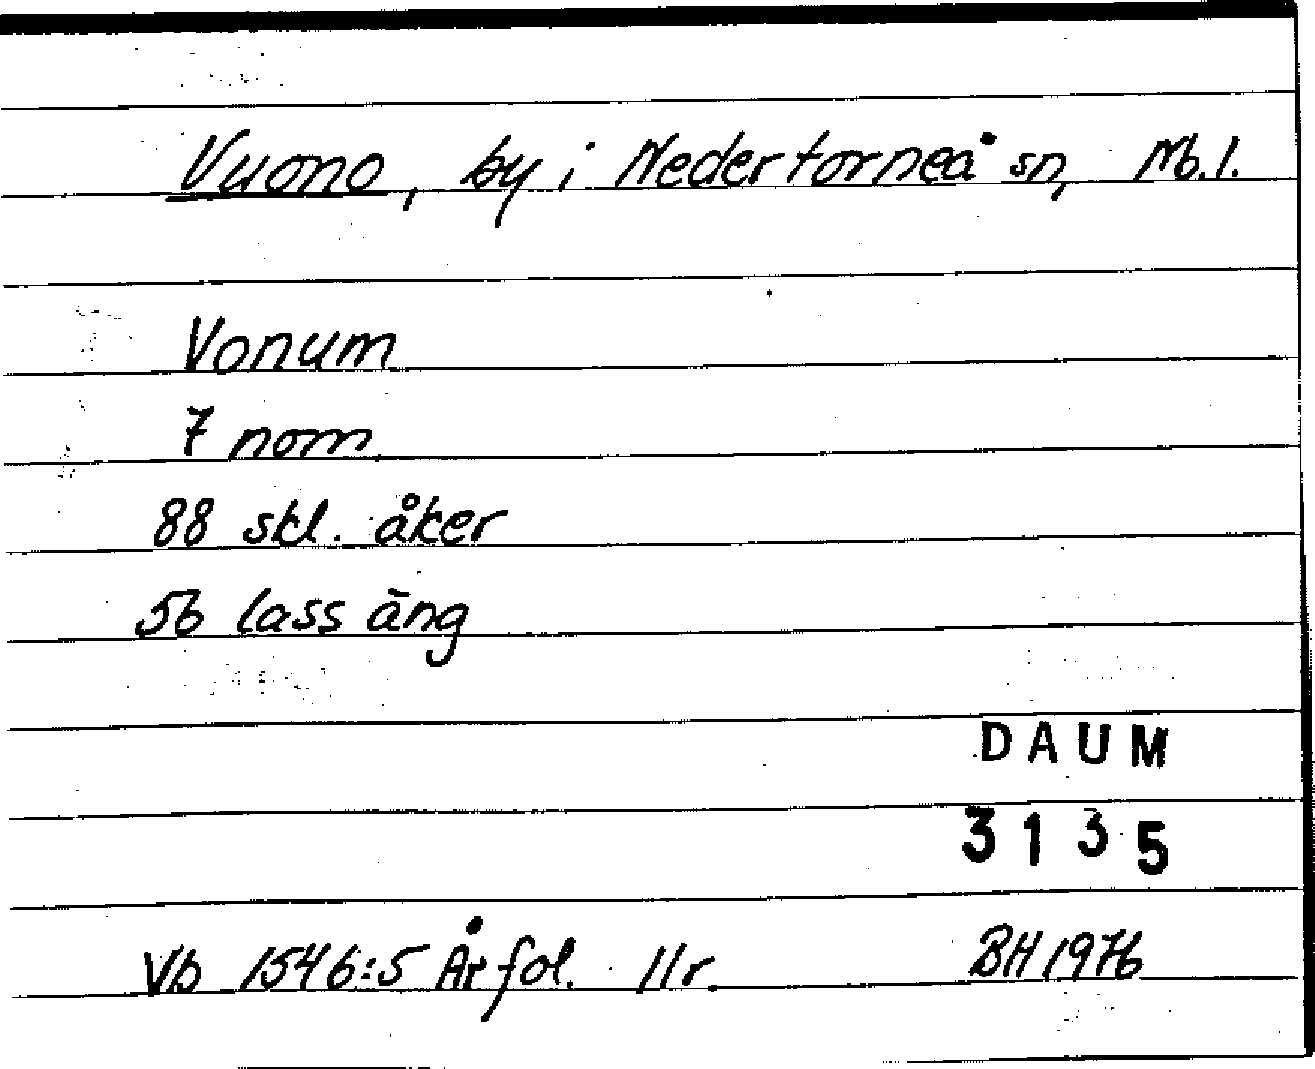 Vuono, by i Nedertorneå sn, Nb.l.
Vonum
7 nom
88 skl. åker
56 lass äng
DAUM
3135
Vb 1546:5 År fol. 11r.
BH 1976